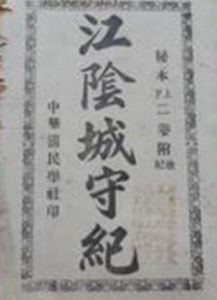 秘本上下二卷附後紀
江陰城守紀
中華國民學社印